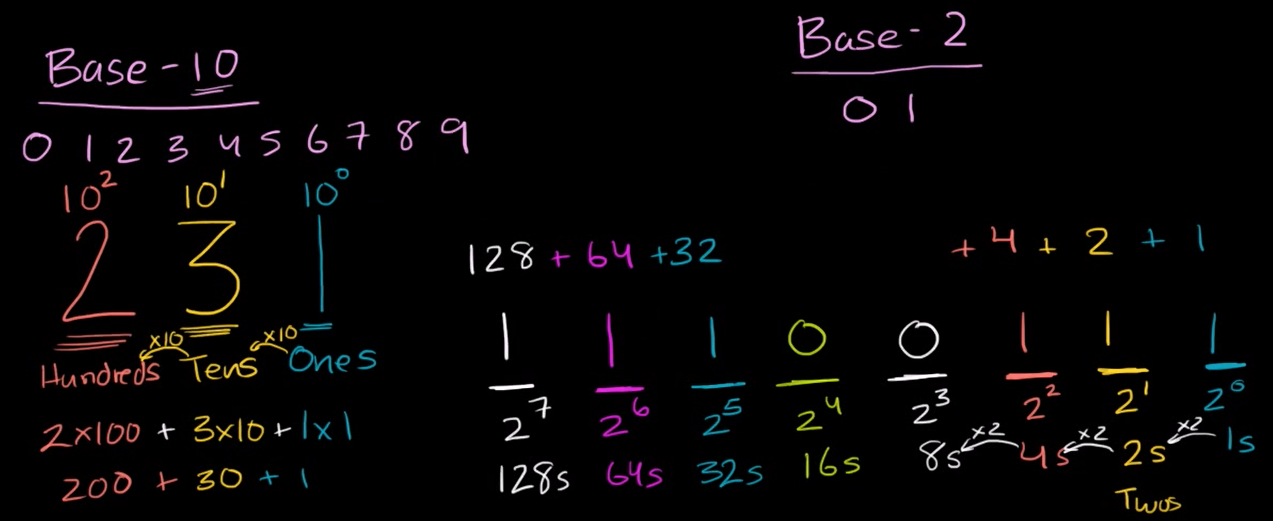 Base-10
0 1 2 3 4 5 6 7 8 9
10² 10¹ 10⁰
2 3 1
×10 ×10
Hundreds Tens Ones
2×100 + 3×10 + 1×1
200 + 30 + 1
Base-2
0 1
128 + 64 + 32 + 4 + 2 + 1
1 1 1 0 0 1 1 1
2⁷ 2⁶ 2⁵ 2⁴ 2³ 2² 2¹ 2⁰
×2 ×2 ×2
128s 64s 32s 16s 8s 4s 2s 1s
Twos